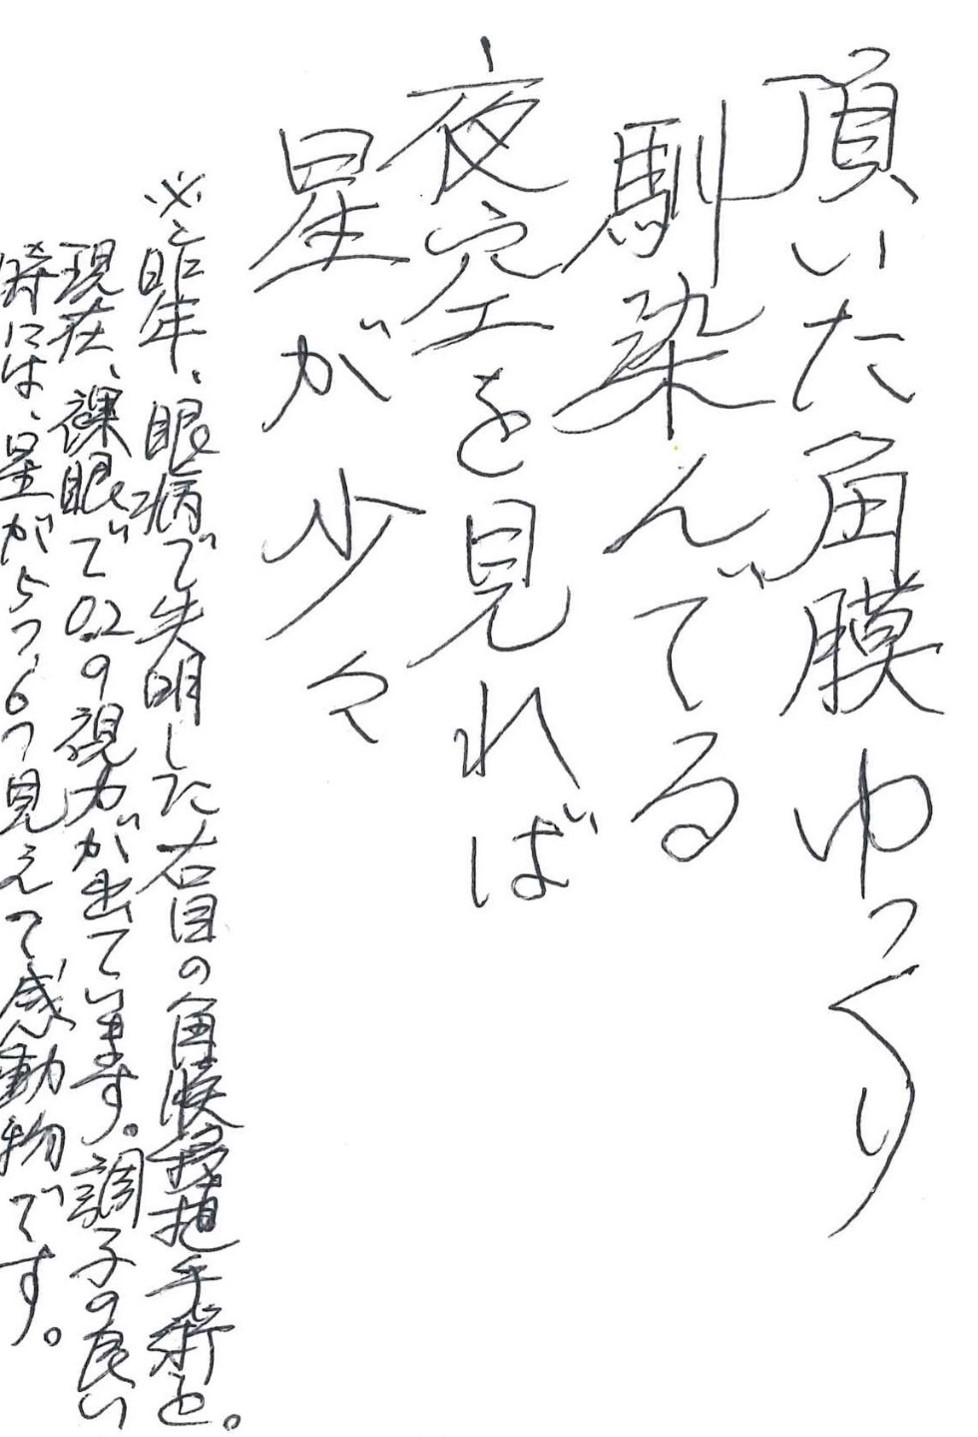 頂いた角膜ゆっくり
馴染んでる
夜空を見れば
星が少々
※一昨年、眼病で失明した右目の角膜移植手術を。
現在、裸眼で0.2の視力が出ています。調子の良い
時には、星が5つ、6つ見えて感動物です。